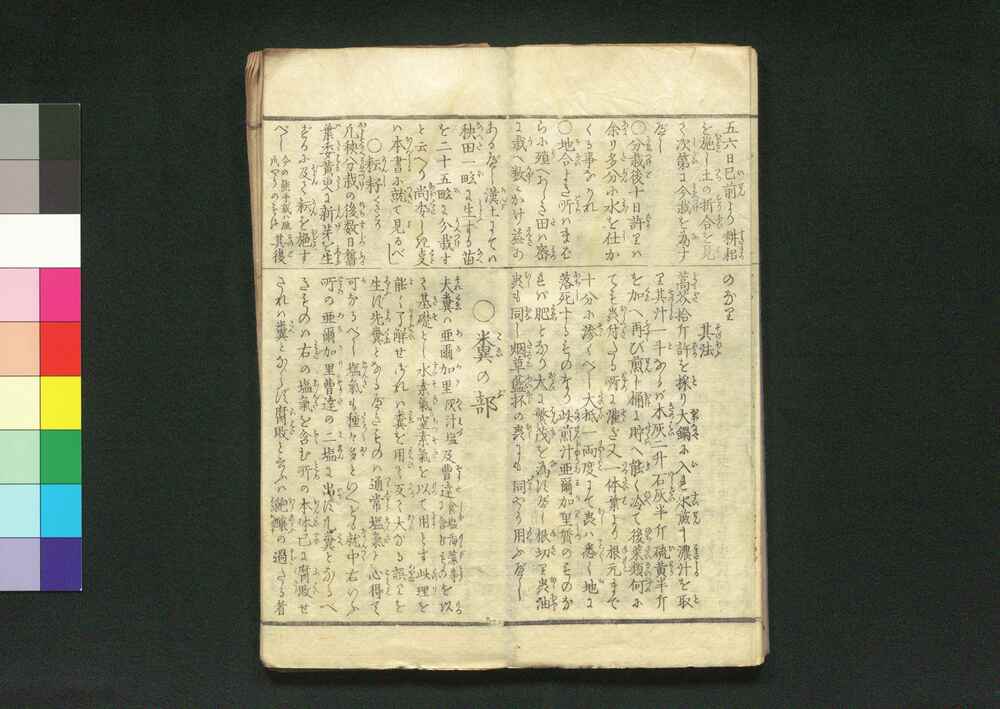 五六日已前より耕耙
を施し土の折合を見
て次第に分栽を為す
べし
○分栽後十日許ハ
余り多分に水を仕か
くる事なかれ
○地合よき所ハまば
らに殖へあしき田ハ密
に栽へ数かけ益の
あるべし漢土にてハ
秧田一畝に生する苗
を二十五畝に分栽す
と云へり尚委しき
ハ本書に就て見るべし
○耘耔
凡秧分栽の後数日旧
葉委黄へに新芽を生
ずるに及て耘を施す
べし 其後
のなり
其法
萬 拾斤許を採り大鍋に入れ水煎し濃汁を取
り其汁一斗あらバ木灰二升石灰半斤硫黄半斤
を加へ再び煎し桶に貯へ能く冷て後菜類何に
ても虫付たる所に灌き又一体葉より根元まで
十分に滲くべし大抵一両度にて虫ハ悉く地に
落死するものなり此煎汁亜爾加里質のものな
れバ肥となり大に繁茂を為すべし根切虫油
虫も同し烟草藍抔の虫にも同やう用ふべし
○糞の部
夫糞ハ亜爾加里灰汁塩及曹達食塩海藻等を以
て基礎とし水素気窒素気を以て用とす此理を
能く了解せされハ糞を用て反て大なる誤を
生ず先糞となるべきものハ通常塩気と心得て
可なるべし塩気も種々多しといへとも就中右いふ
所の亜爾加里曹達の二塩に出ず凡糞となるべ
きものハ右の塩気を含む所の本体已に腐敗せ
されハ糞とならず腐敗と云ふハ醗醸の過たる者